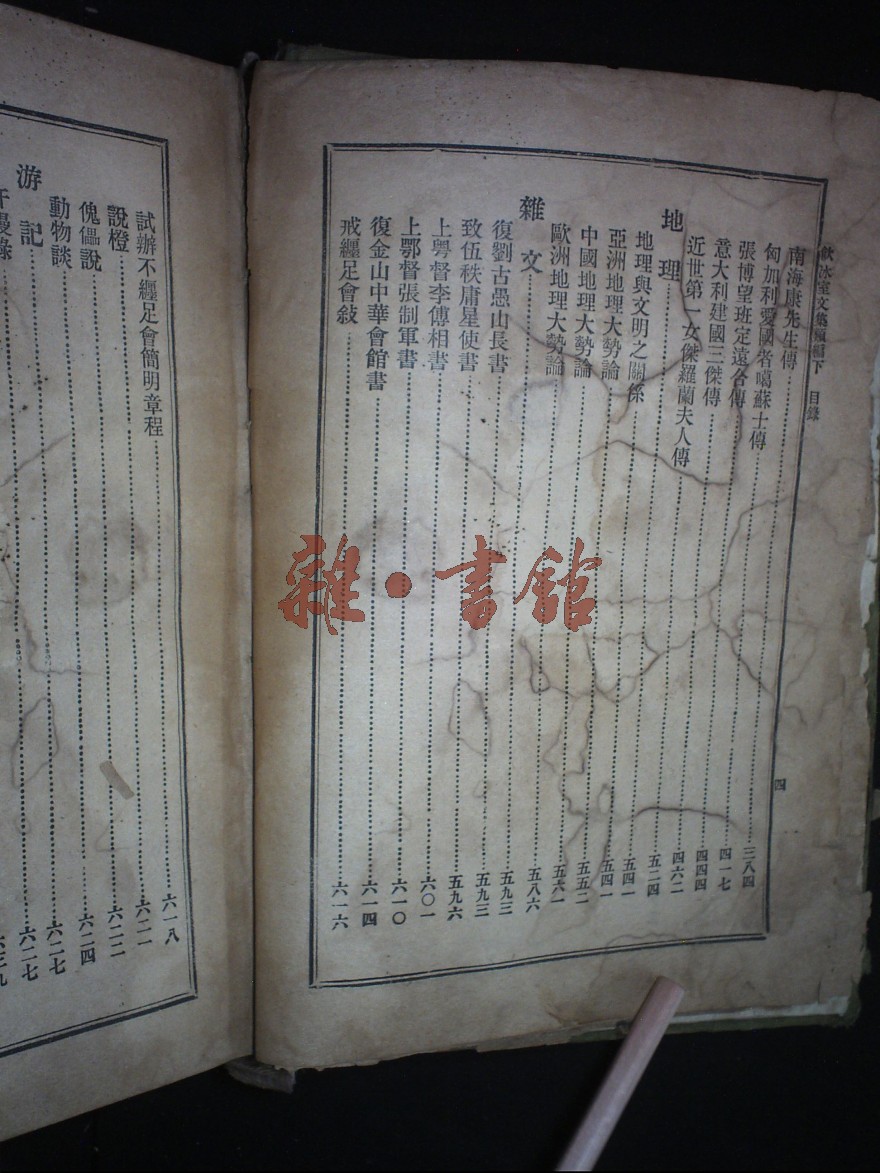 飲冰室文集類編下 目錄 四
南海康先生傳……三八四
匈加利愛國者噶蘇士傳……四一七
張博望班定遠合傳……四四四
意大利建國三傑傳……四六二
近世第一女傑羅蘭夫人傳……五二四
地理……五四一
地理與文明之關係……五四一
亞洲地理大勢論……五五二
中國地理大勢論……五六一
歐洲地理大勢論……五八六
雜文……五九三
復劉古愚山長書……五九三
致伍秩庸星使書……五九六
上粵督李傅相書……六〇一
上鄂督張制軍書……六一〇
復金山中華會館書……六一四
戒纏足會敍……六一六
試辦不纏足會簡明章程……六一八
說橙……六二一
傀儡說……六二二
動物談……六二四
游記……六二七
漫錄……六二七
雜·書館